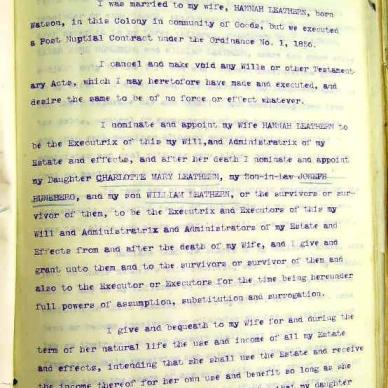 I was married to my wife, HANNAH LEATHERN, born
Watson, in this Colony in community of Goods, but we executed
a Post Nuptial Contract under the Ordinance No. 1, 1856.
I cancel and make void any Wills or other Testament
ary Acts, which I may heretofore have made and executed, and
desire the same to be of no force or effect whatever.
I nominate and appoint my Wife HANNAH LEATHERN to
be the Executrix of this my Will,and Administratrix of my
Estate and effects, and after her death I nominate and appoint
my Daughter CHARLOTTE MARY LEATHERN, my Son-in-law JOSEPH
and my son WILLIAM LEATHERN, or the survivors or sur-
vivor of them, to be the Executrix and Executors of this my
Will and Administratrix and Administrators of my Estate and
Effects from and after the death of my Wife, and I give and
grant unto them and to the survivors or survivor of them and
also to the Executor or Executors for the time being hereunder
full powers of assumption, substitution and surrogation.
I give and bequeath to my Wife for and during the
term of her natural life the use and income of all my Estate
and effects, intending that she shall use the Estate and receive
the income thereof for her own use and benefit so long as she
that my daughter